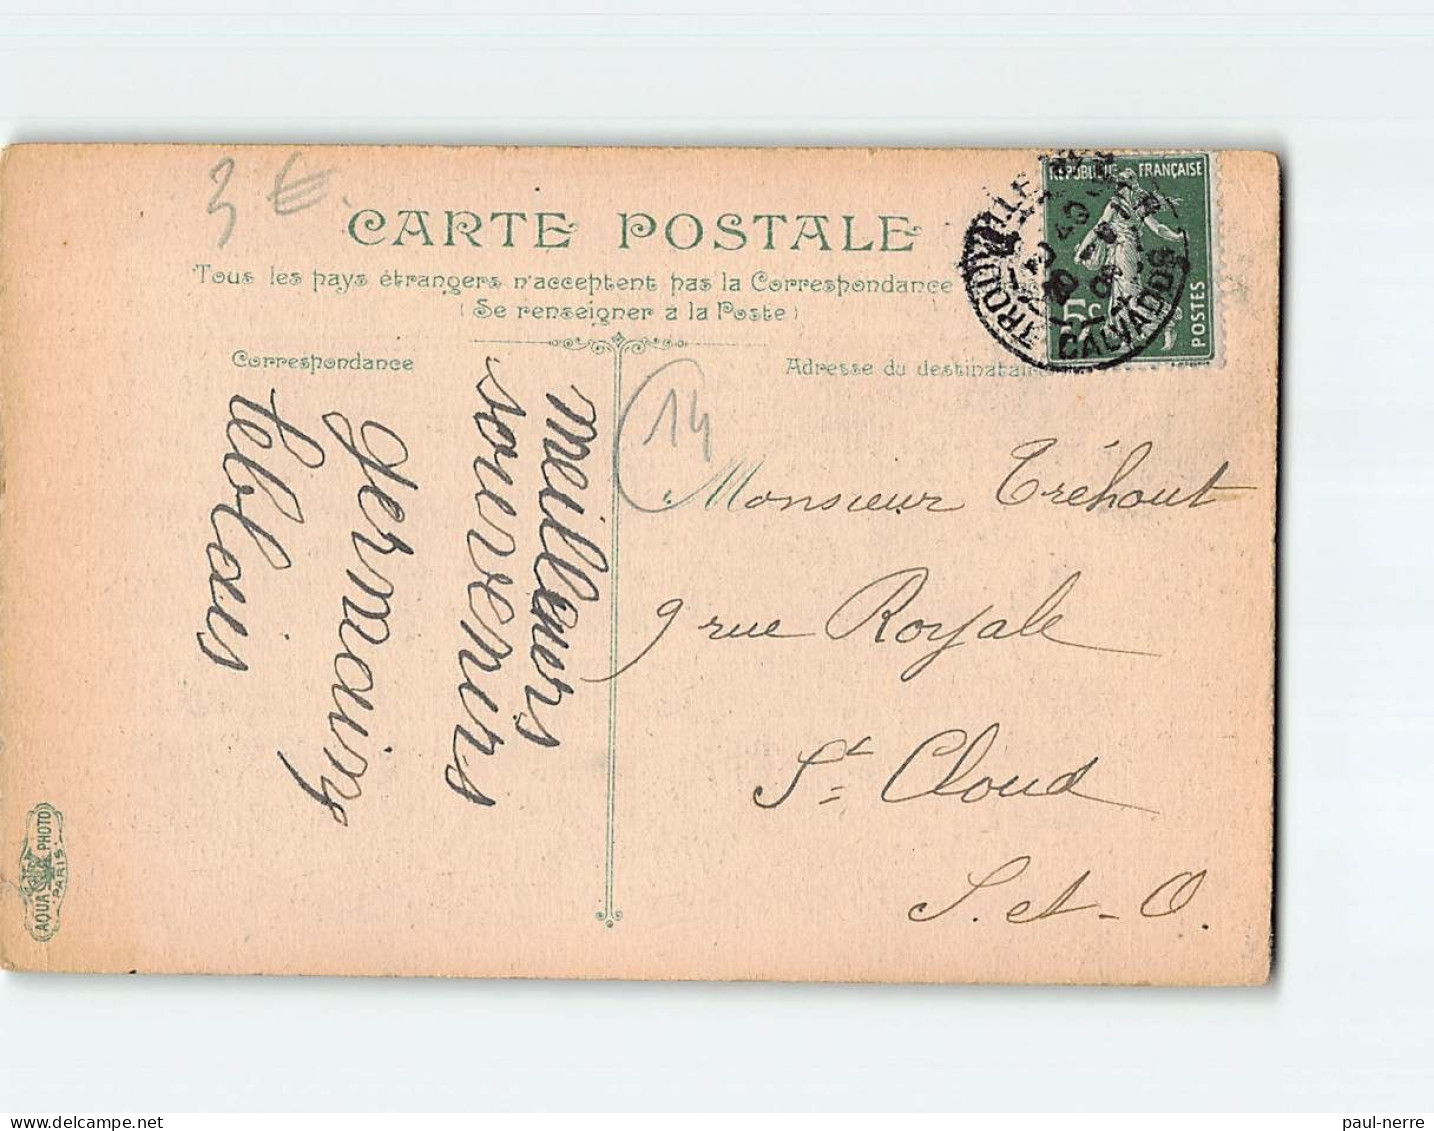 3 €.
CARTE POSTALE
Tous les pays étrangers n'acceptent pas la Correspondance
(Se renseigner à la Poste)
Correspondance
Adresse du destinataire
REPUBLIQUE FRANÇAISE
5c
POSTES
TROUVILLE
CALVADOS
14
meilleurs
souvenirs
Germaine
Leblais
Monsieur Tréhout
9 rue Royale
St Cloud
S. et-O.
AQUA PHOTO
PARIS
paul-nerre